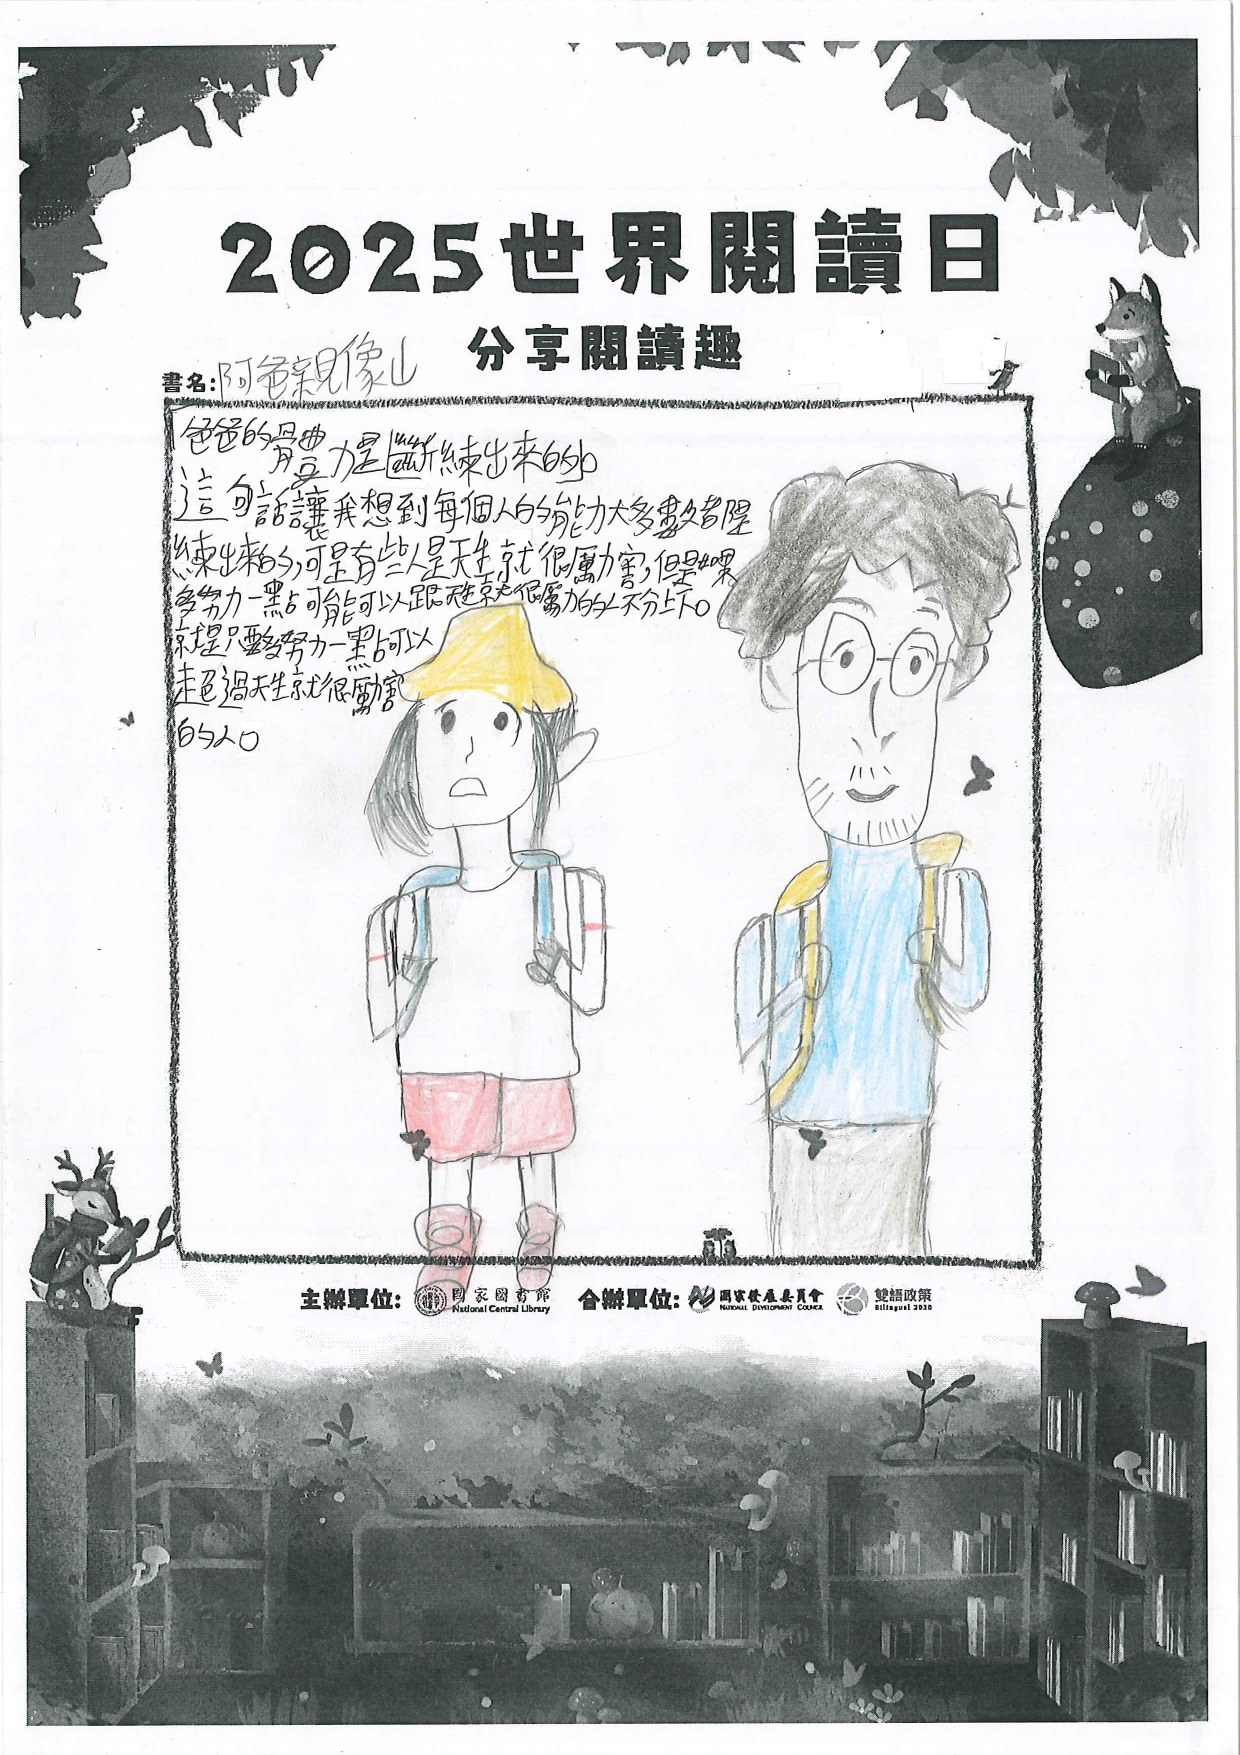 2025世界閱讀日
分享閱讀趣
書名:阿爸親像山
爸爸的體力是鍛練出來的。
這句話讓我想到每個人的能力大多數都是
練出來的,可是有些人是天生就很厲害,但是如果
多努力一點可能可以跟天生就很厲的人不分上下。
就是只要多努力一點可以
超過天生就很厲害
的人。
主辦單位: 國家圖書館 合辦單位: 國家發展委員會 雙語政策
National Central Library NATIONAL DEVELOPMENT COUNCIL Bilingual 2030